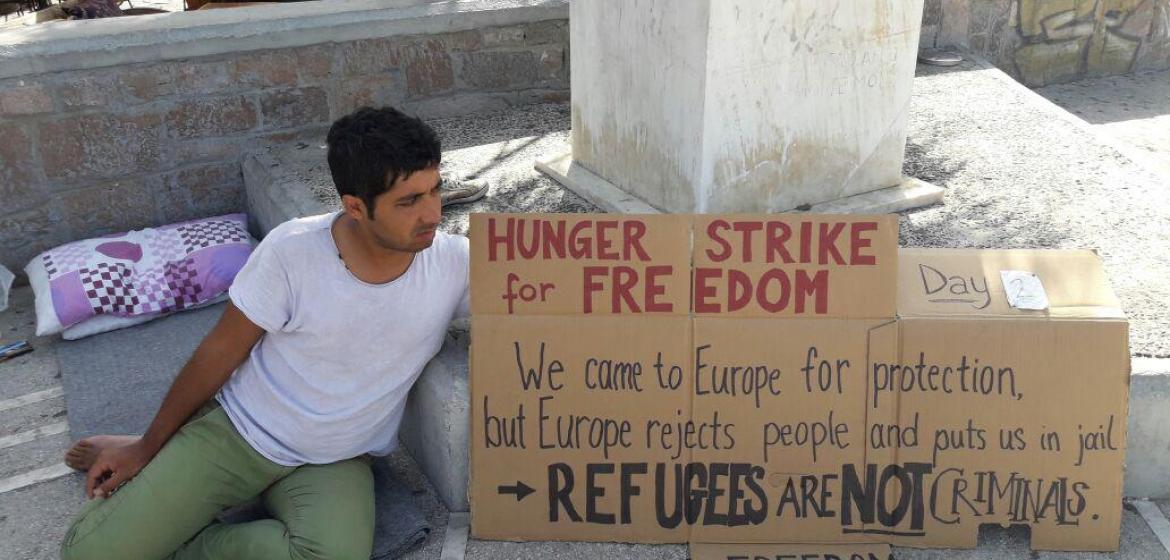 HUNGER STRIKE
for FREEDOM
Day 2
We came to Europe for protection,
but Europe rejects people and puts us in jail
→ REFUGEES ARE NOT CRIMINALS.
FREEDOM